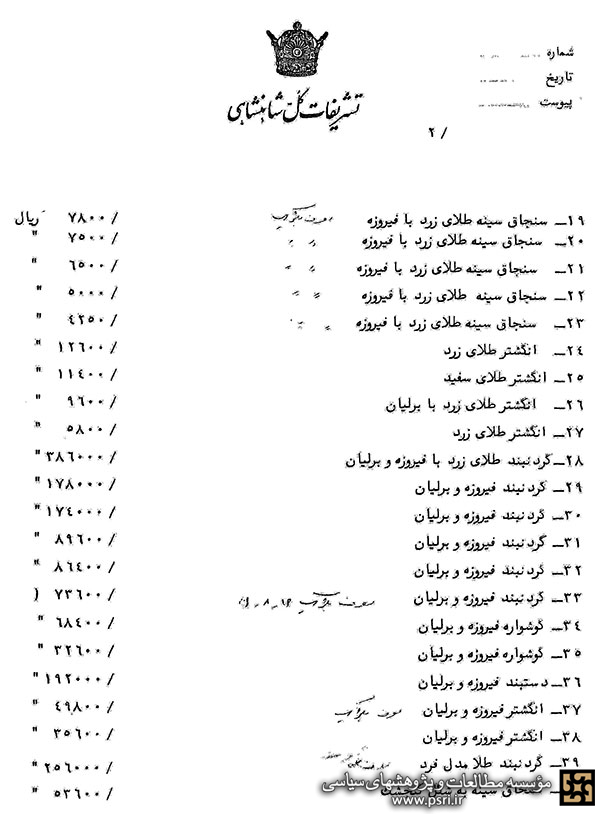 شماره
تاریخ
پیوست
تشریفات کل شاهنشاهی
۲ /
۱۹ــ سنجاق سینه طلای زرد با فیروزه /۷۸۰۰ ریال
۲۰ــ سنجاق سینه طلای زرد با فیروزه /۷۵۰۰ "
۲۱ــ سنجاق سینه طلای زرد با فیروزه /۶۵۰۰ "
۲۲ــ سنجاق سینه طلای زرد با فیروزه /۵۰۰۰ "
۲۳ــ سنجاق سینه طلای زرد با فیروزه /۴۲۵۰ "
۲۴ــ انگشتر طلای زرد /۱۲۶۰۰ "
۲۵ــ انگشتر طلای سفید /۱۱۴۰۰ "
۲۶ــ انگشتر طلای زرد با برلیان /۹۶۰۰ "
۲۷ــ انگشتر طلای زرد /۵۸۰۰ "
۲۸ــ گردنبند طلای زرد با فیروزه و برلیان /۳۸۶۰۰۰ "
۲۹ــ گردنبند فیروزه و برلیان /۱۷۸۰۰۰ "
۳۰ــ گردنبند فیروزه و برلیان /۱۷۴۰۰۰ "
۳۱ــ گردنبند فیروزه و برلیان /۸۹۶۰۰ "
۳۲ــ گردنبند فیروزه و برلیان /۸۶۴۰۰ "
۳۳ــ گردنبند فیروزه و برلیان /۷۳۶۰۰ (
۳۴ــ گوشواره فیروزه و برلیان /۶۸۴۰۰ "
۳۵ــ گوشواره فیروزه و برلیان /۳۲۶۰۰ "
۳۶ــ دستبند فیروزه و برلیان /۱۹۲۰۰۰ "
۳۷ــ انگشتر فیروزه و برلیان /۴۹۸۰۰ "
۳۸ــ انگشتر فیروزه و برلیان /۳۵۶۰۰ "
۳۹ــ گردنبند طلا مدل فرد /۲۵۶۰۰۰ "
سنجاق سینه به شکل /۵۳۶۰۰ "
مؤسسه مطالعات و پژوهشهای سیاسی
www.psri.ir